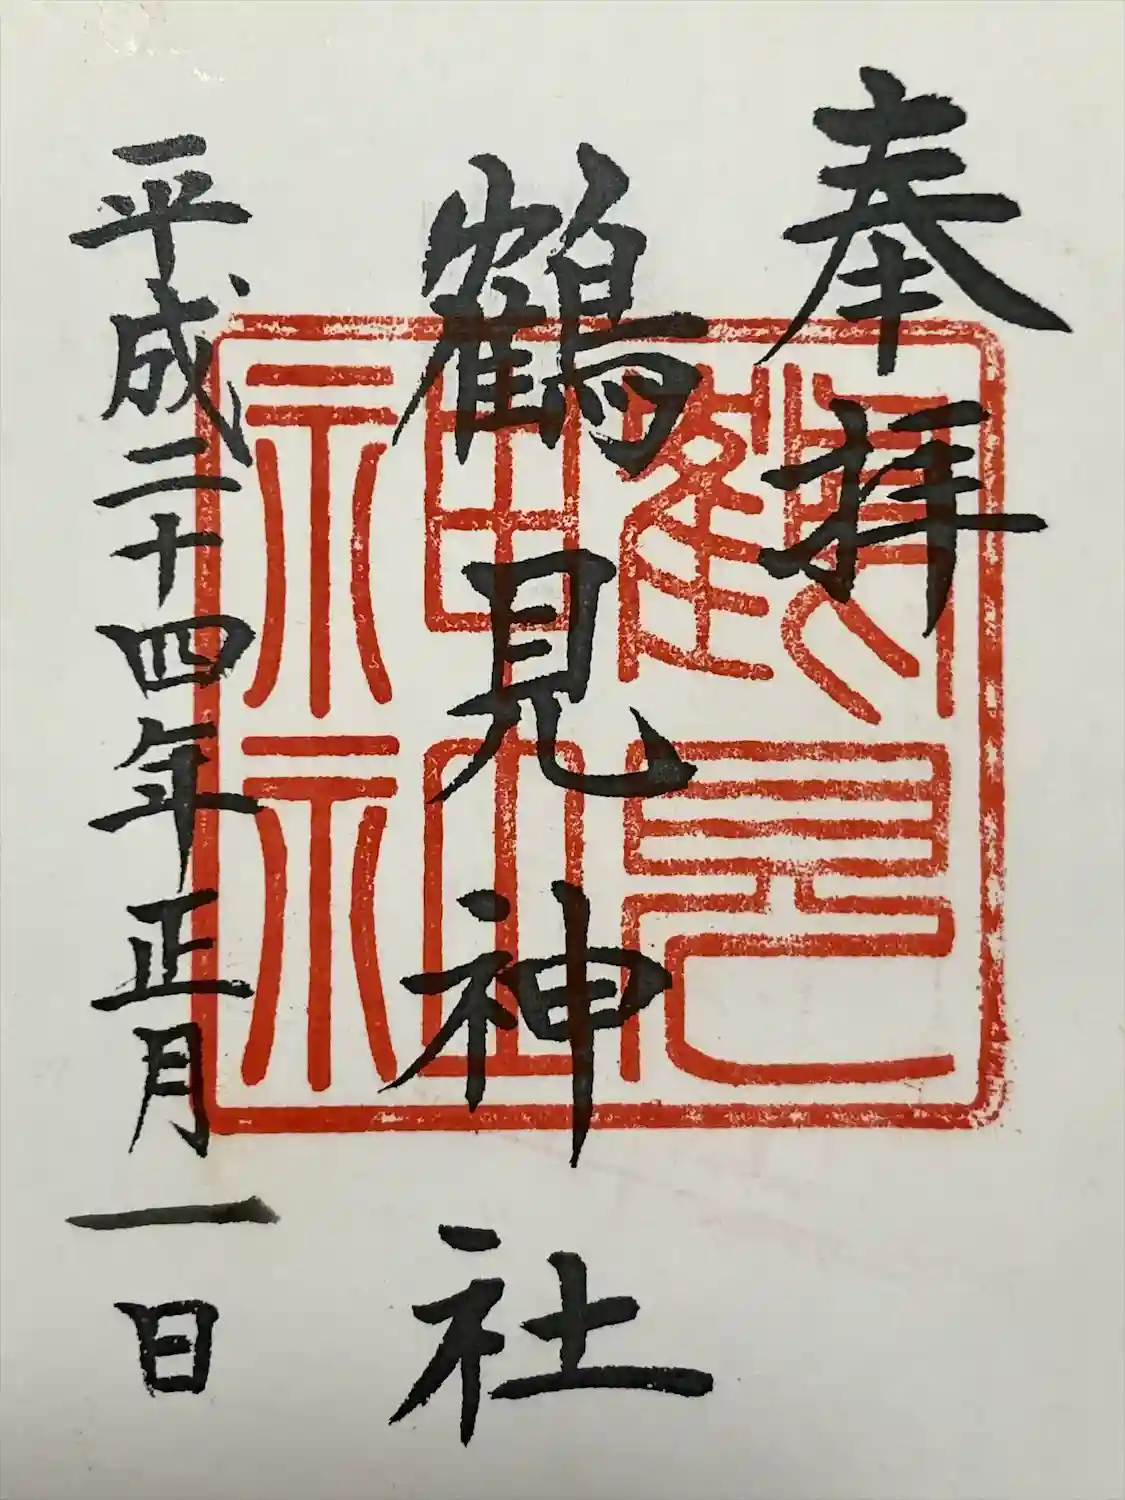 奉拝
鶴見神社
平成二十四年正月一日
鶴見
神社